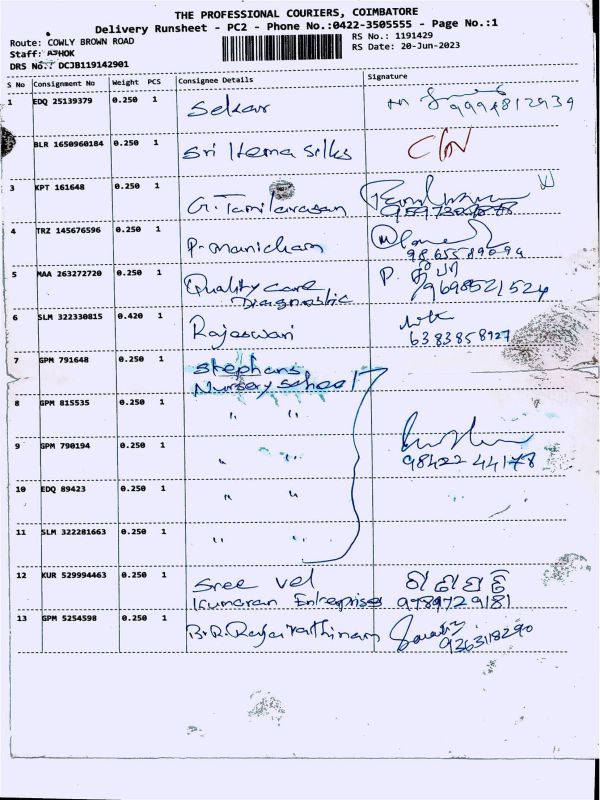 THE PROFESSIONAL COURIERS, COIMBATORE
Delivery Runsheet - PC2 - Phone No.:0422-3505555 - Page No.:1
Route: COWLY BROWN ROAD
RS No.: 1191429
Staff: ASHOK
RS Date: 20-Jun-2023
DRS No.: DCJB119142901
S No Consignment No Weight PCS Consignee Details Signature
1 EDQ 25139379 0.250 1 Sekar 9994812939
BLR 1650960184 0.250 1 Sri Hema Silks C/N
3 KPT 161648 0.250 1 G. Tamilarasan
4 TRZ 145676596 0.250 1 P. Manickam
9865589094
5 MAA 263272720 0.250 1 Quality care P.
Diagnostic 9698521524
6 SLM 322330815 0.420 1 Rajeswari
6383858927
7 GPM 791648 0.250 1 Stephans
Nursery School
8 GPM 815535 0.250 1 " "
9 GPM 790194 0.250 1 " "
9842244178
10 EDQ 89423 0.250 1 " "
11 SLM 322281663 0.250 1 " "
12 KUR 529994463 0.250 1 Sree Vel
Kumaran Enterprises 9789729181
13 GPM 5254598 0.250 1 B.R. Rajarathinam
9363118290